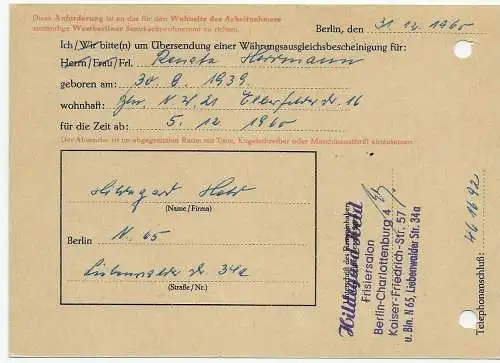 Diese Anforderung ist an das für den Wohnsitz des Arbeitnehmers
zuständige Westberliner Bezirkseinwohneramt zu richten.
Berlin, den 31. 12. 1960
Ich/Wir bitte(n) um Übersendung einer Währungsausgleichsbescheinigung für:
Herrn/Frau/Frl. Renate Herrmann
geboren am: 30. 8. 1939
wohnhaft: N W 21 Elberfelder Str. 16
für die Zeit ab: 5. 12. 1960
Der Absender ist im abgegrenzten Raum mit Tinte, Kugelschreiber oder Maschinenschrift einzusetzen.
Hildegard Held
(Name/Firma)
Berlin N. 65
Liebenwalder Str. 34a
(Straße/Nr.)
Hildegard Held
Frisiersalon
Berlin-Charlottenburg 4
Kaiser-Friedrich-Str. 57
u. Bln. N 65, Liebenwalder Str. 34a
Telephonanschluß: 461692